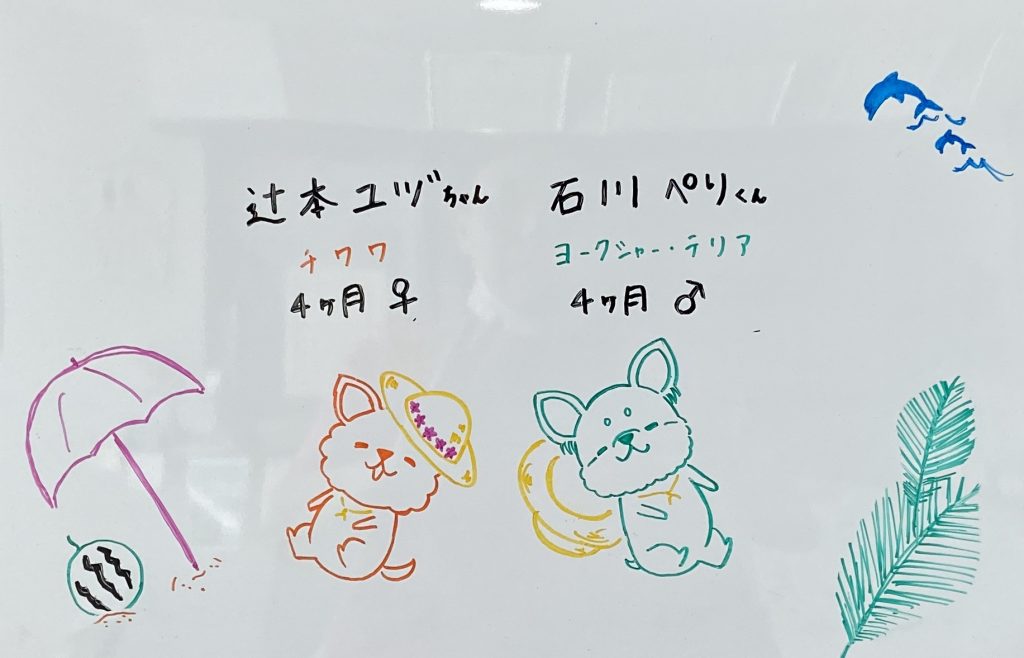 辻本ユヅちゃん
チワワ
4ヶ月 ♀
石川ぺりくん
ヨークシャー・テリア
4ヶ月 ♂